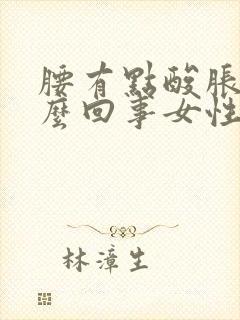 腰有點酸脹
麼回事女性
林漳生